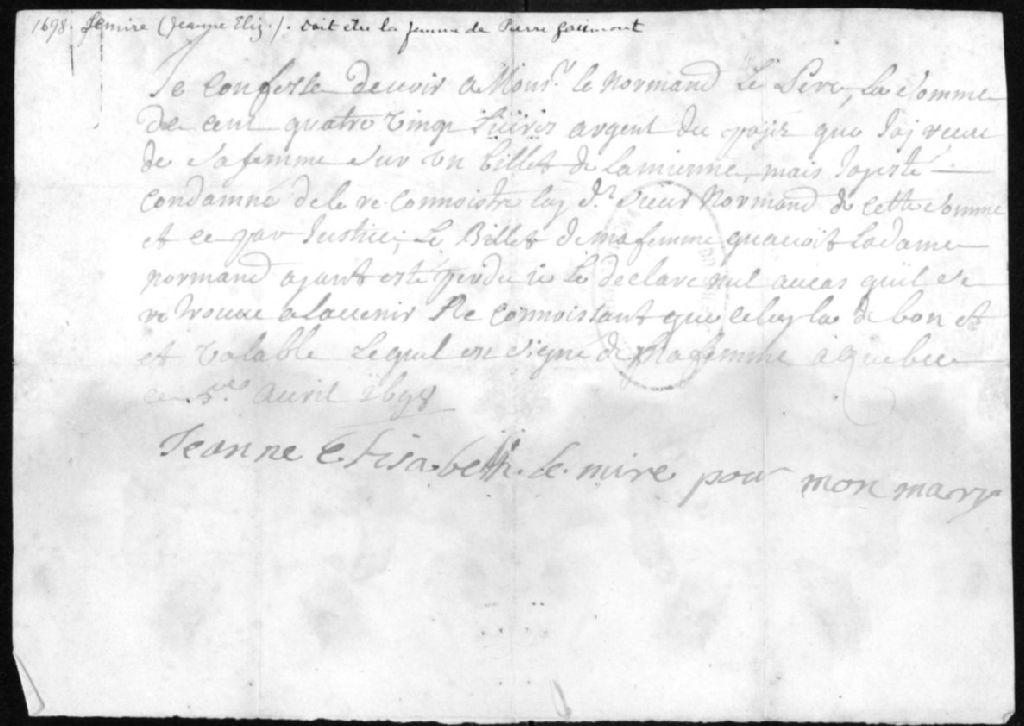 1698. Lemire (Jeanne Eliz.). doit être la femme de Pierre
Je Confesse devoir a Monsr. le normand Le Pere, La Somme
De cent quatre Vingt Liures argent du pays que Jay receue
de Sa femme Sur un billet de La mienne, mais Jay esté
Condamné de le re Connoistre Sieur Normand de cette Somme
et ce par Justice, Le Billet de ma femme quavoit La dame
normand ayant esté perdu ie le declare nul au cas quil Se
re trouve a Lavenir Re Connoissant que celuy la de bon et
et valable Lequel est Signé de Ma femme a Quebec
ce 5me avril 1698
Jeanne Elisabeth. le mire pour mon mary